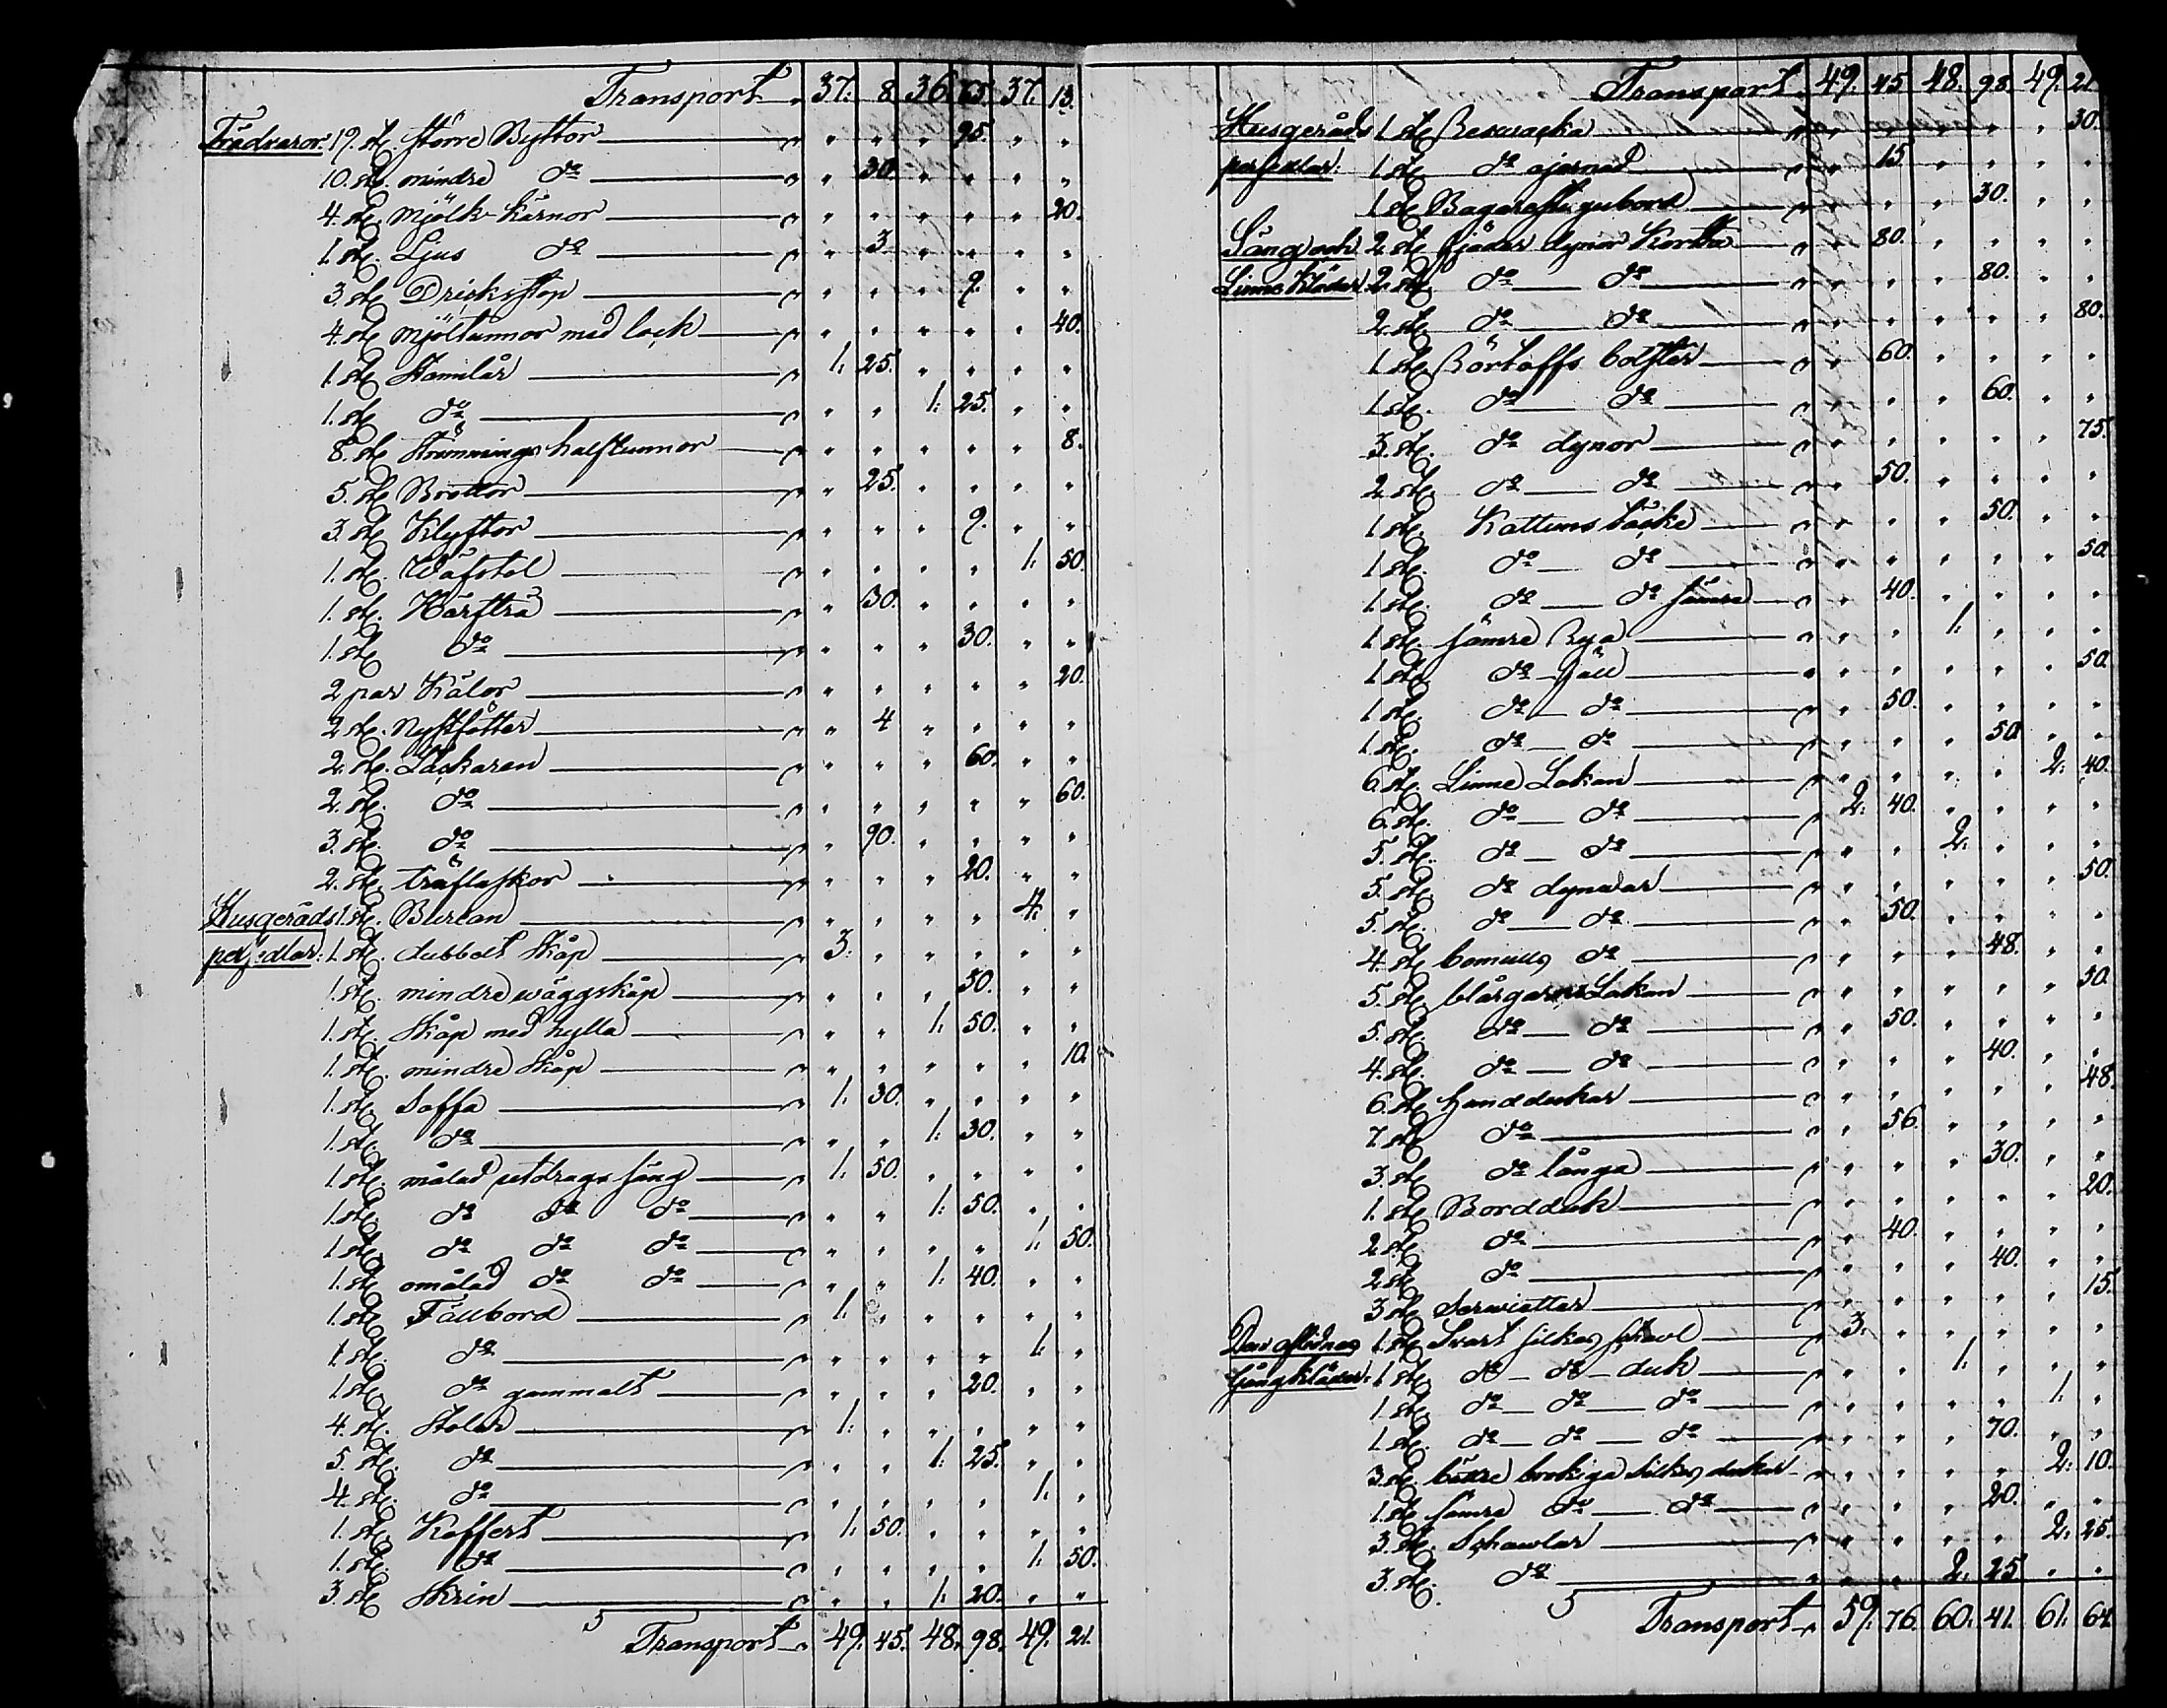 Transport 37. 8 36. 65. 37. 13.
Trädvaror: 19. st. större Byttor " " " 95. " "
10. st. mindre do " 30. " " " "
4. st. Mjölk-kärnor " " " " " 20.
1. st. Ljus do " 3. " " " "
3. st. Dricksstop " " " 9. " "
4. st. Mjöltunnor med lock " " " " " 40.
1. st. Stamlår 1: 25. " " " "
1. st. do " " 1: 25. " "
8. st. Strömmings halftunnor " " " " " 8.
5. st. Brottor " 25. " " " "
3. st. Klyftor " " " 9. " "
1. st. Wäfstol " " " " 1: 50.
1. st. Kärfträ " 30. " " " "
1. st. do " " " 30. " "
2 par Kälor " " " " " 20.
2 st. Nystfötter " 4 " " " "
2. st. Läckaren " " " 60. " "
2. st. do " " " " " 60.
3. st. do " 90. " " " "
2. st. träflaskor " " " 20. " "
Husgeråds 1. st. Burean " " " " 4: "
persedlar: 1. st. dubbelt Skåp 3: " " " " "
1. st. mindre wäggskåp " " " 50. " "
1. st. Skåp med hylla " " 1: 50. " "
1. st. mindre Skåp " " " " " 10.
1. st. Soffa 1: 30. " " " "
1. st. do " " 1: 30. " "
1. st. målad utdrags säng 1: 50. " " " "
1. st. do do do " " 1: 50. " "
1. st. do do do " " " " 1: 50.
1. st. omålad do do " " 1: 40. " "
1. st. Fällbord 1: " " " " "
1. st. do " " " " 1: "
1. st. do gammalt " " " 20. " "
4. st. Stolar 1: " " " " "
5. st. do " " 1: 25. " "
4. st. do " " " " 1: "
1. st. Koffert 1: 50. " " " "
1. st. do " " " " 1: 50.
3. st. Skrin " " 1: 20. " "
Transport 49. 45. 48. 98. 49. 21.
Transport 49. 45 48. 98. 49. 21
Husgeråds 1 st. " " " " " 30.
persedlar: 1 st. do " 15 " " " "
1 st. Bagarestugubord " " " 30. " "
Säng och 2 st. fjäder dynor Korta " 80. " " " "
Linne Kläder 2. st. do do " " " 80. " "
2. st. do do " " " " " 80.
1. st. Börtoffs bolster " 60. " " " "
1. st. do do " " " 60. " "
3. st. do dynor " " " " " 75.
2 st. do do " 50. " " " "
1 st. Kattuns täcke " " " 50. " "
1 st. do do " " " " " 50
1 st. do do sämre " 40. " " " "
1 st. sämre Rya " " 1: " " "
1 st. do fäll " " " " " 50
1 st. do do " 50. " " " "
1 st. do do " " " 50 " "
6 st. Linne Lakan " " " " 2: 40.
6. st. do do 2: 40. " " " "
5. st. do do " " 2: " " "
5. st. do dynwar " " " " " 50.
5. st. do do " 50. " " " "
4. st. bomulls do " " " 48. " "
5. st. blårgarns Lakan " " " " " 50.
5. st. do do " 50. " " " "
4. st. do do " " " 40. " "
6. st. handdukar " " " " " 48.
7 st. do " 56. " " " "
3. st. do långa " " " 30. " "
1. st. Bordduk " " " " " 20.
2 st. do " 40. " " " "
2 st. do " " " 40. " "
3 st. Serwietter " " " " " 15.
Den aflidnes 1. st. Svart silkes schavl 3: " " " " "
gångkläder: 1 st. do do duk " " 1: " " "
1 st. do do do " " " " 1: "
1 st. do do do " " " 70. " "
3 st. bättre brokiga silkes dukar " " " " 2: 10.
1 st. sämre do do " " " 20. " "
3. st. Schawlar " " " " 2: 25.
3. st. do " " 2: 25 " "
Transport 59. 76. 60. 41. 61. 64